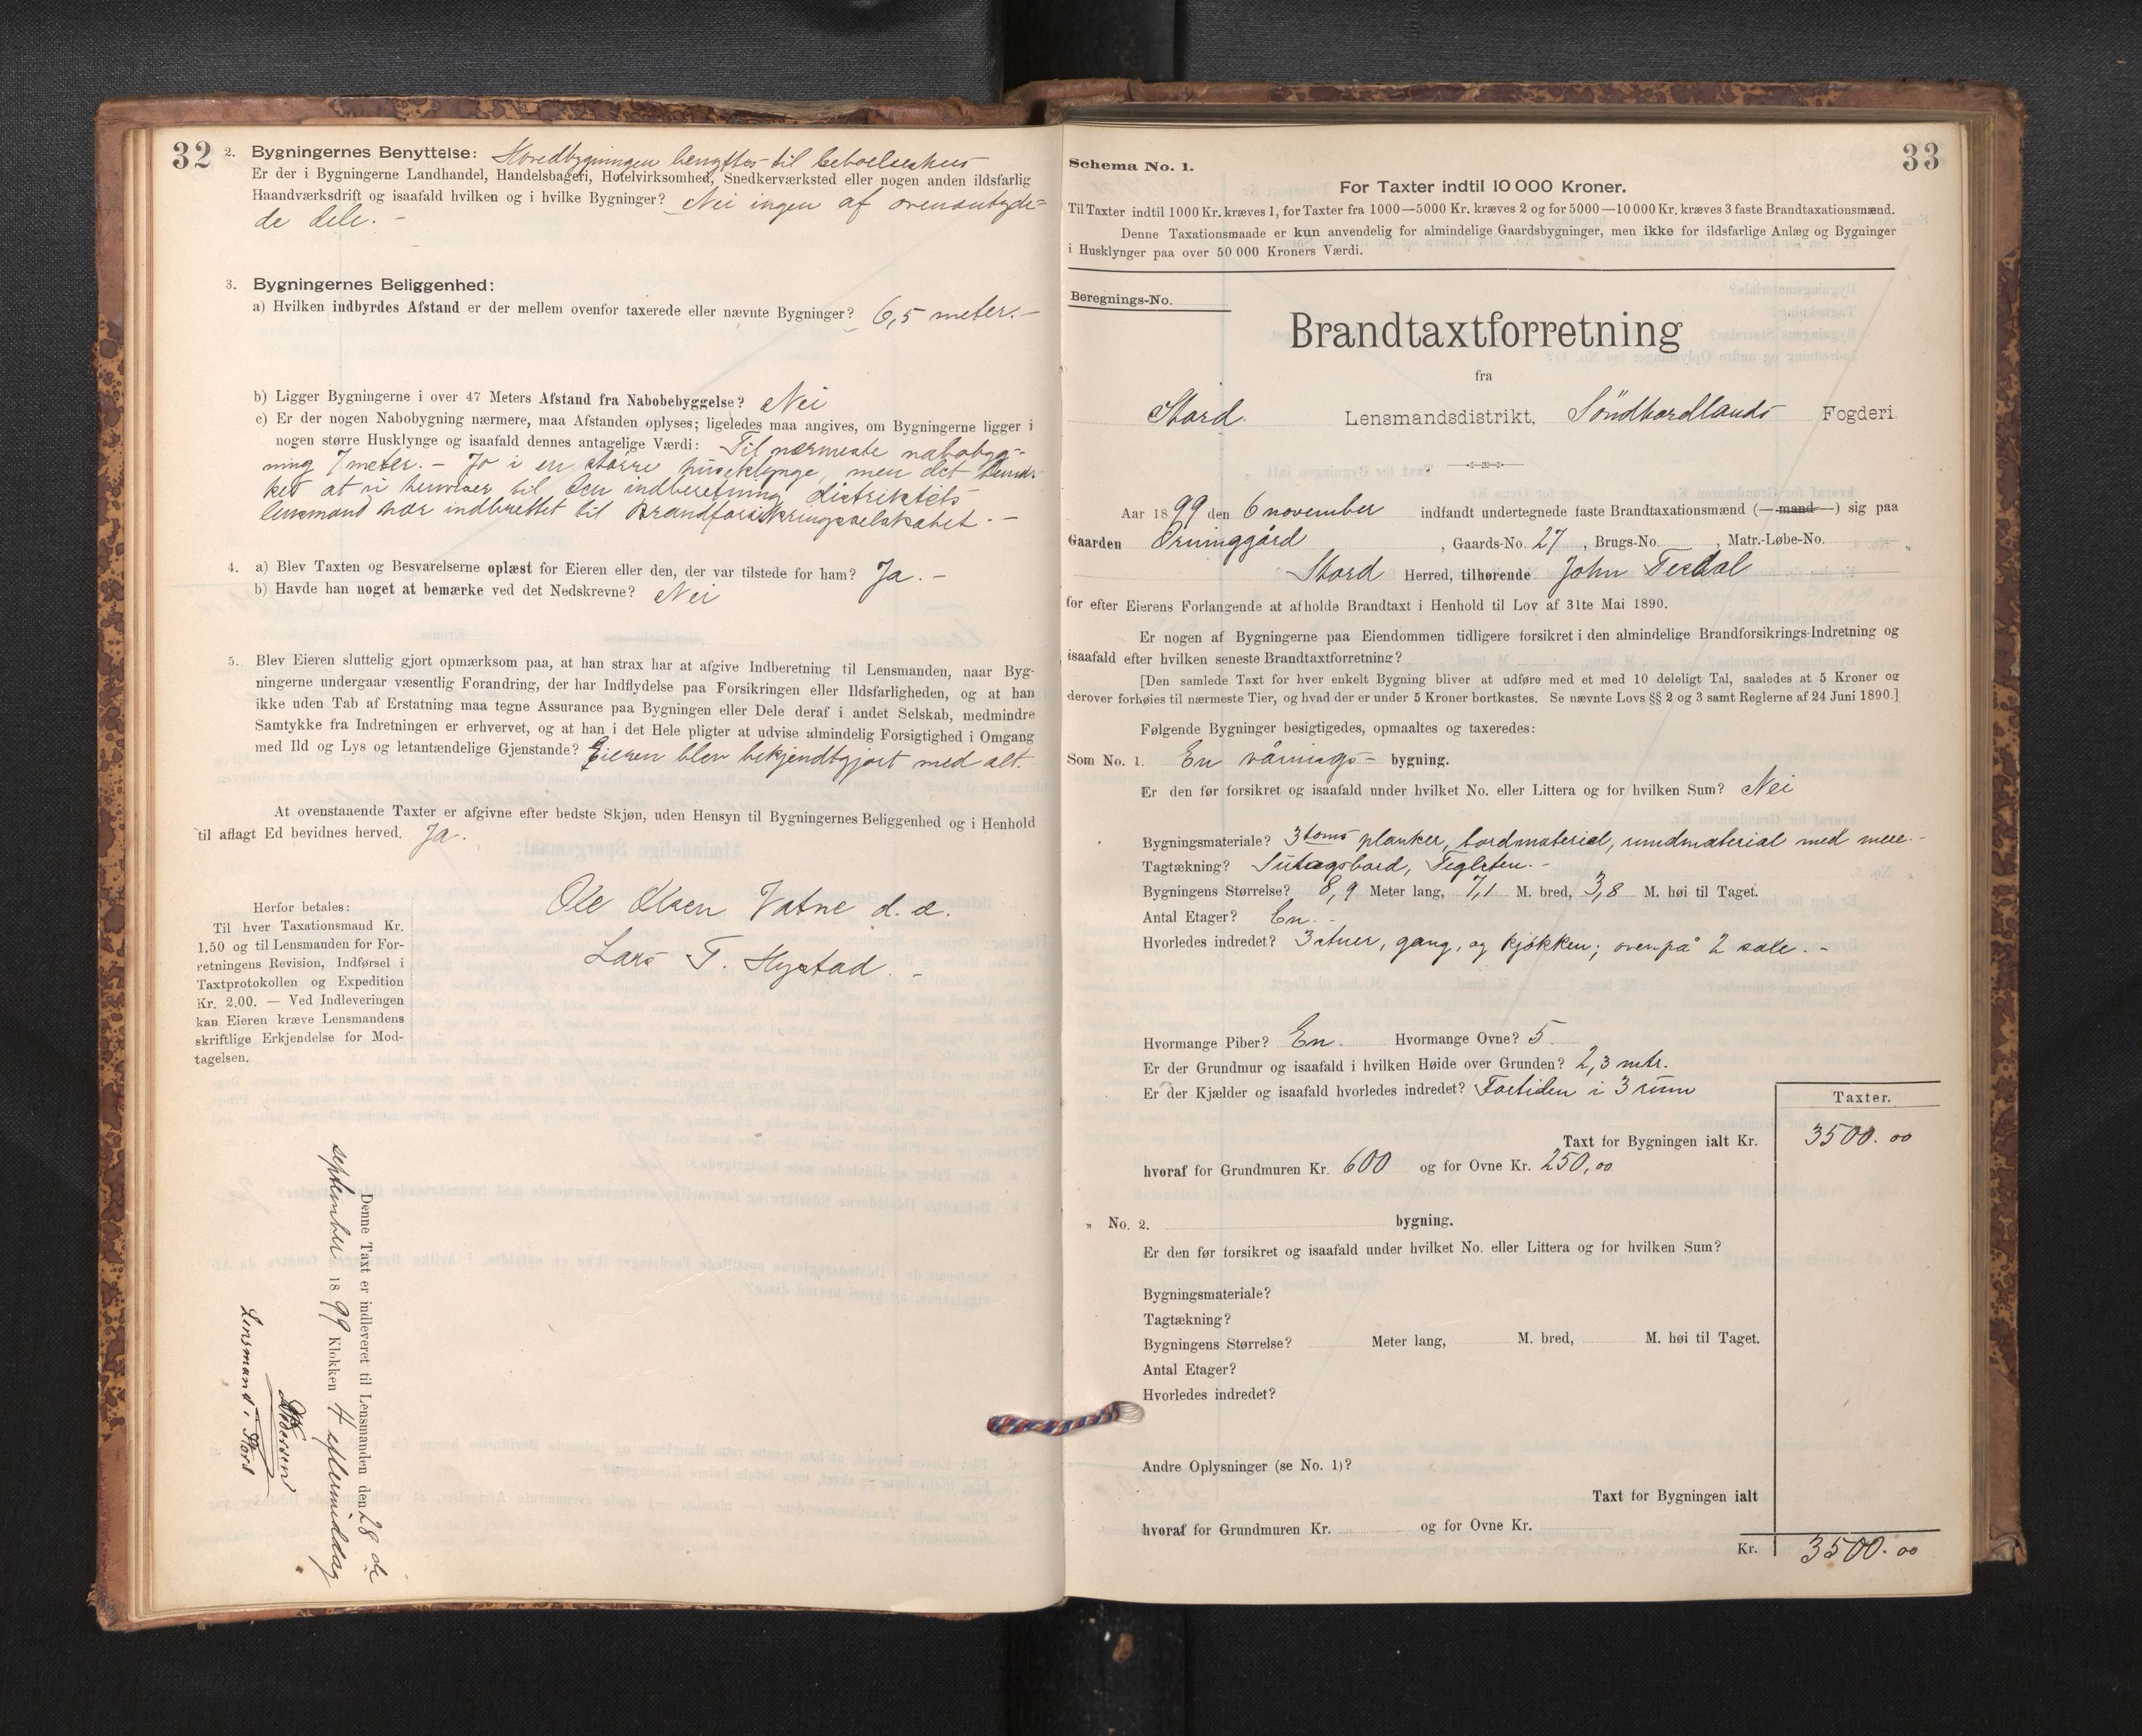 32
2. Bygningernes Benyttelse: Hovedbygningen benyttes til beboelseshus
Er der i Bygningerne Landhandel, Handelsbageri, Hotelvirksomhed, Snedkerværksted eller nogen anden ildsfarlig
Haandværksdrift og isaafald hvilken og i hvilke Bygninger? Nei ingen af ovenantyde=
de dele. -
3. Bygningernes Beliggenhed:
a) Hvilken indbyrdes Afstand er der mellem ovenfor taxerede eller nævnte Bygninger? 6,5 meter. -
b) Ligger Bygningerne i over 47 Meters Afstand fra Nabobebyggelse? Nei
c) Er der nogen Nabobygning nærmere, maa Afstanden oplyses; ligeledes maa angives, om Bygningerne ligger i
nogen større Husklynge og isaafald dennes antagelige Værdi: Til nærmeste nabobyg=
ning 7 meter. - Jo i en större huseklynge, men det
ket at vi henviser til den indberetning distriktets
lensmand har indberettet til Brandforsikringsselskabet. -
4. a) Blev Taxten og Besvarelserne oplæst for Eieren eller den, der var tilstede for ham? Ja. -
b) Havde han noget at bemærke ved det Nedskrevne? Nei
5. Blev Eieren sluttelig gjort opmærksom paa, at han strax har at afgive Indberetning til Lensmanden, naar Byg-
ningerne undergaar væsentlig Forandring, der har Indflydelse paa Forsikringen eller Ildsfarligheden, og at han
ikke uden Tab af Erstatning maa tegne Assurance paa Bygningen eller Dele deraf i andet Selskab, medmindre
Samtykke fra Indretningen er erhvervet, og at han i det Hele pligter at udvise almindelig Forsigtighed i Omgang
med Ild og Lys og letantændelige Gjenstande? Eieren blev bekjendtgjort med alt.
At ovenstaaende Taxter er afgivne efter bedste Skjøn, uden Hensyn til Bygningernes Beliggenhed og i Henhold
til aflagt Ed bevidnes herved. Ja.
Ole Olsen Vatne d. e.
Lars T. Hystad. -
Herfor betales:
Til hver Taxationsmand Kr.
1.50 og til Lensmanden for For-
retningens Revision, Indførsel i
Taxtprotokollen og Expedition
Kr. 2.00. — Ved Indleveringen
kan Eieren kræve Lensmandens
skriftlige Erkjendelse for Mod-
tagelsen.
Denne Taxt er indleveret til Lensmanden den 28 de
september 1899 Klokken 4 eftermiddag
Lensmand i Stord
33
Schema No. 1.
For Taxter indtil 10 000 Kroner.
Til Taxter indtil 1000 Kr. kræves 1, for Taxter fra 1000—5000 Kr. kræves 2 og for 5000—10 000 Kr. kræves 3 faste Brandtaxationsmænd.
Denne Taxationsmaade er kun anvendelig for almindelige Gaardsbygninger, men ikke for ildsfarlige Anlæg og Bygninger
i Husklynger paa over 50 000 Kroners Værdi.
Beregnings-No.
Brandtaxtforretning
fra
Stord Lensmandsdistrikt, Söndhordlands Fogderi.
Aar 1899 den 6 november indfandt undertegnede faste Brandtaxationsmænd (—mand—) sig paa
Gaarden , Gaards-No. 27, Brugs-No. , Matr.-Løbe-No.
Stord Herred, tilhørende John
for efter Eierens Forlangende at afholde Brandtaxt i Henhold til Lov af 31te Mai 1890.
Er nogen af Bygningerne paa Eiendommen tidligere forsikret i den almindelige Brandforsikrings-Indretning og
isaafald efter hvilken seneste Brandtaxtforretning?
[Den samlede Taxt for hver enkelt Bygning bliver at udføre med et med 10 deleligt Tal, saaledes at 5 Kroner og
derover forhøies til nærmeste Tier, og hvad der er under 5 Kroner bortkastes. Se nævnte Lovs §§ 2 og 3 samt Reglerne af 24 Juni 1890.]
Følgende Bygninger besigtigedes, opmaaltes og taxeredes:
Som No. 1. En vånings- bygning.
Er den før forsikret og isaafald under hvilket No. eller Littera og for hvilken Sum? Nei
Bygningsmateriale? 3 toms planker, bordmaterial, rundmaterial med mere. -
Tagtækning? Sutagsbord, Teglsten. -
Bygningens Størrelse? 8,9 Meter lang, 7,1 M. bred, 3,8 M. høi til Taget.
Antal Etager? En. -
Hvorledes indredet? 3 stuer, gang, og kjökken; ovenpå 2 sale. -
Hvormange Piber? En. Hvormange Ovne? 5
Er der Grundmur og isaafald i hvilken Høide over Grunden? 2,3 mtr.
Er der Kjælder og isaafald hvorledes indredet? i 3 rum
Taxter.
Taxt for Bygningen ialt Kr. 3500.00
hvoraf for Grundmuren Kr. 600 og for Ovne Kr. 250,00
„ No. 2. bygning.
Er den før forsikret og isaafald under hvilket No. eller Littera og for hvilken Sum?
Bygningsmateriale?
Tagtækning?
Bygningens Størrelse? Meter lang, M. bred, M. høi til Taget.
Antal Etager?
Hvorledes indredet?
Andre Oplysninger (se No. 1)?
Taxt for Bygningen ialt
hvoraf for Grundmuren Kr. og for Ovne Kr.
Kr. 3500.00